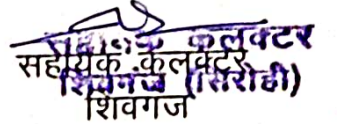 सहायक कलक्टर
शिवगंज (सिरोही)
सहायक कलक्टर
शिवगंज